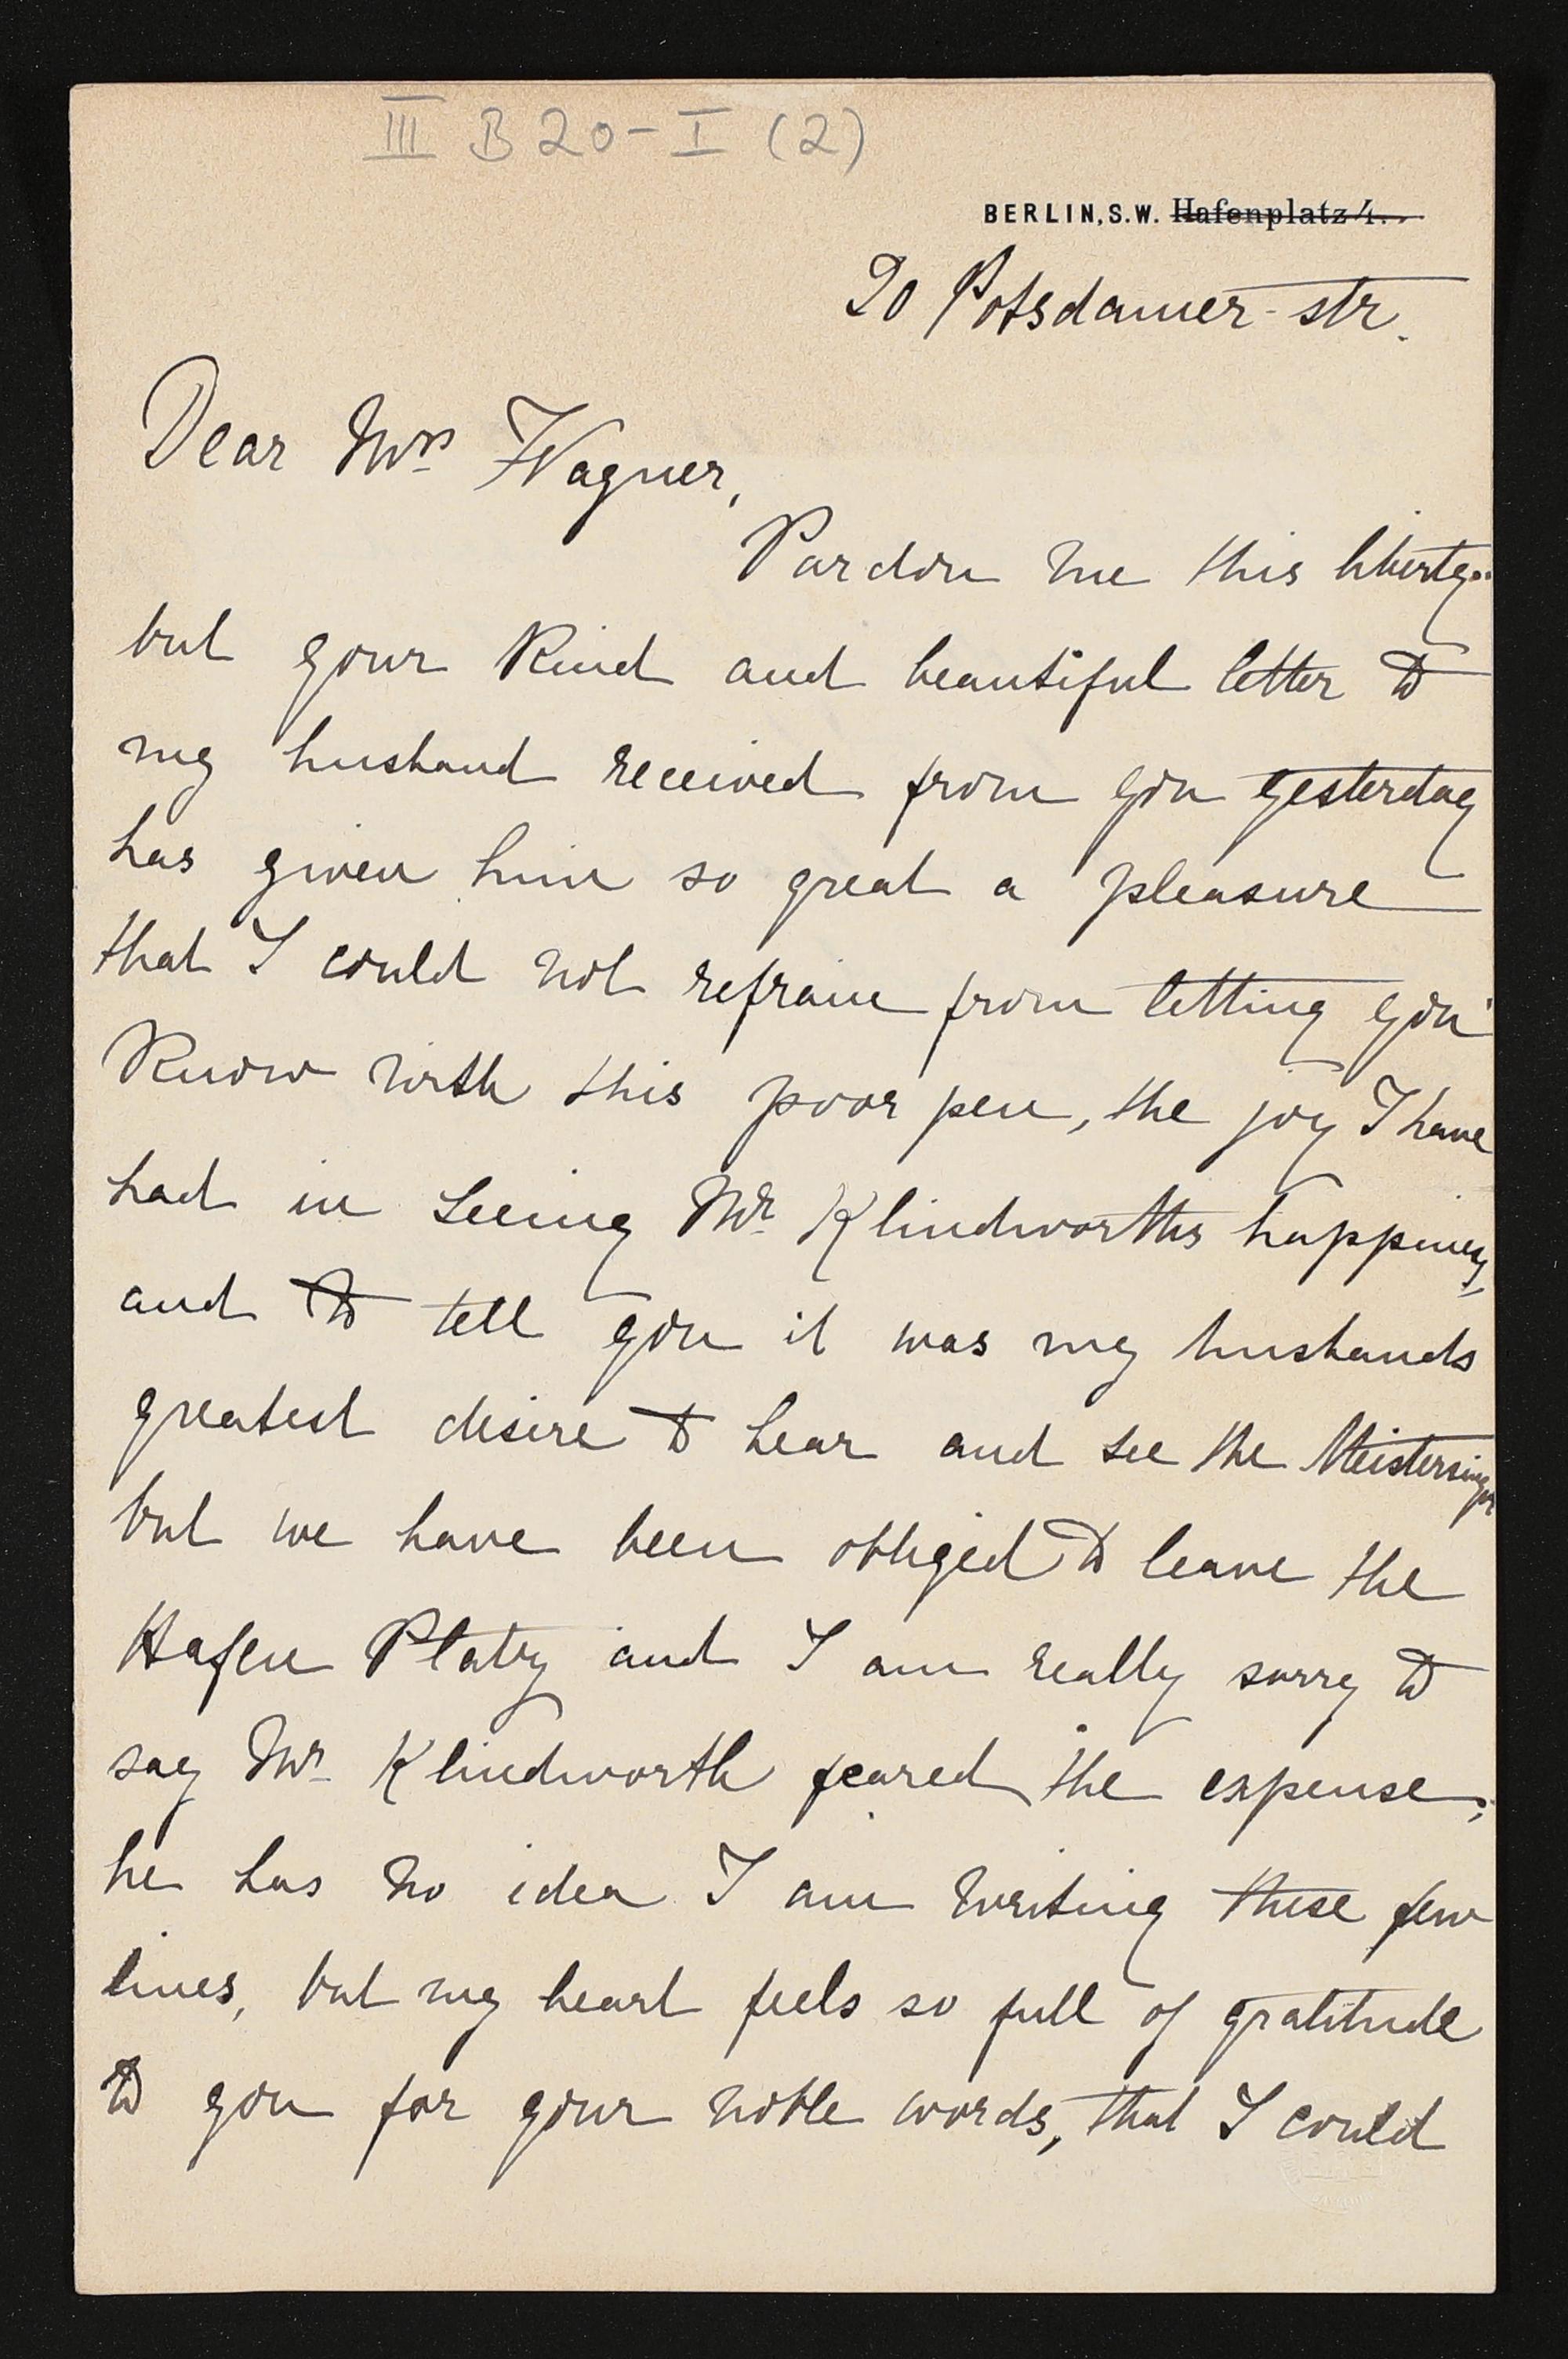 III B 20-I (2)
BERLIN, S.W. Hafenplatz 4.
20 Potsdamer-str.
Dear Mrs Wagner,
Pardon me this liberty..
but your kind and beautiful letter to
my husband received from you yesterday
has given him so great a pleasure
that I could not refrain from letting you
know with this poor pen, the joy I have
had in seeing Mr Klindworths happiness,
and to tell you it was my husbands
greatest desire to hear and see the Meistersinger
but we have been obliged to leave the
Hafen Platz and I am really sorry to
say Mr Klindworth feared the expense;
he has no idea I am writing these few
lines, but my heart feels so full of gratitude
to you for your noble words, that I could